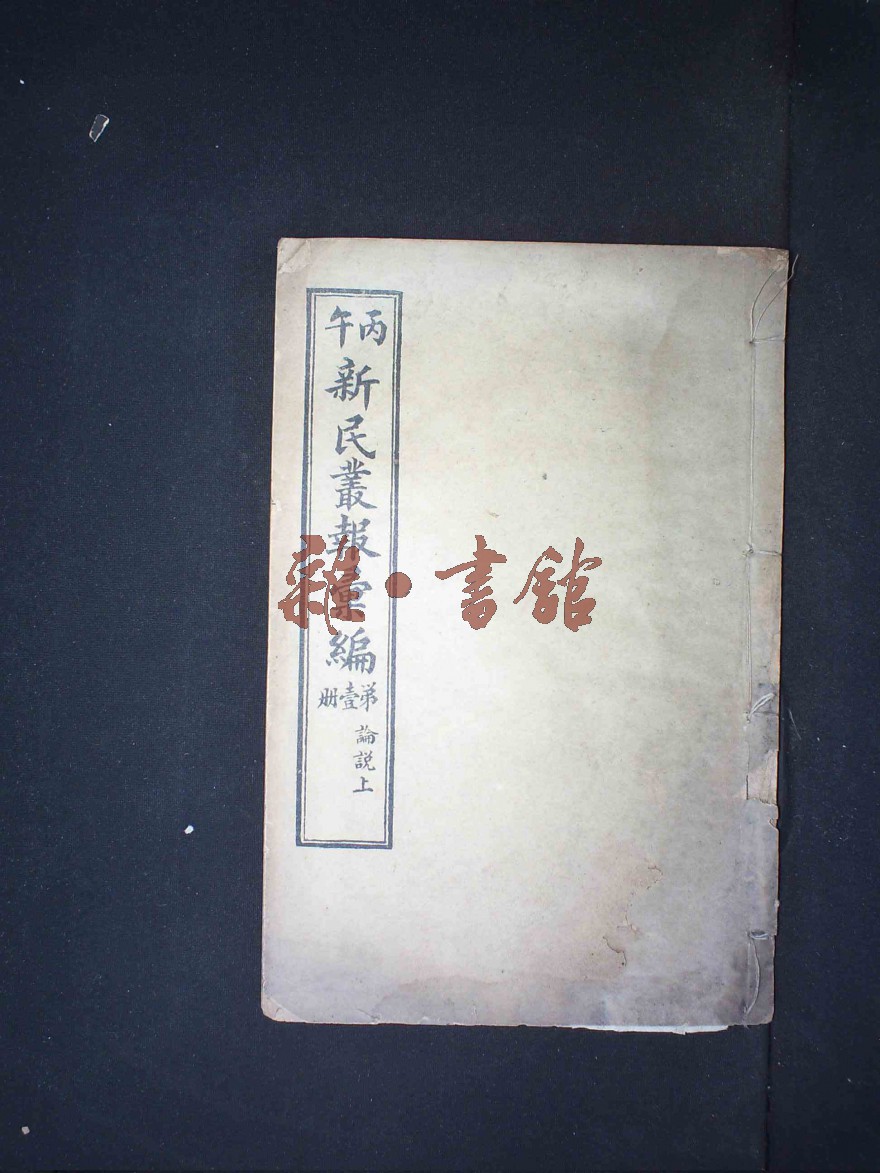 丙午
新民叢報彙編
第壹册
論説上
雜·書館